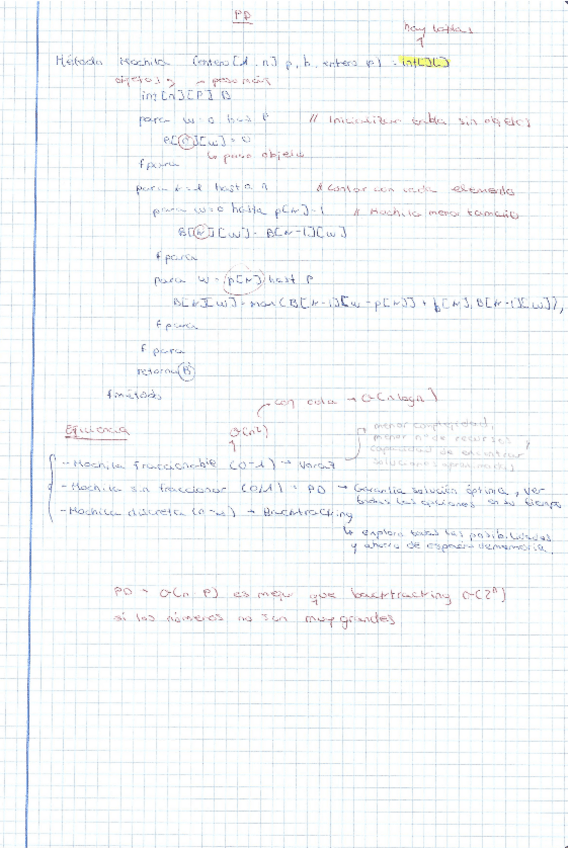 PD
hay tablas
Método Mochila (entero[1..n] p, b, entero P) = int[][]
objetos peso máx
int[n][P] B
para w=0 hasta P // Inicializar tabla sin objetos
B[0][w]=0
↳ peso objeto
fpara
para k=1 hasta n // Contar con cada elemento
para w=0 hasta p[k]-1 // Mochila menor tamaño
B[k][w]=B[k-1][w]
fpara
para w=p[k] hasta P
B[k][w]=max(B[k-1][w-p[k]]+b[k], B[k-1][w]),
fpara
fpara
retorna B
fmétodo
con cola → O(n log n)
Eficiencia O(n²)
menor complejidad,
menor nº de recursos y
capacidad de encontrar
soluciones aproximadas
- Mochila fraccionable (0-1) → Voraz
- Mochila sin fraccionar (0/1) = PD → Garantía solución óptima, ver
todas las opciones en su tiempo
- Mochila discreta (0-n) → Backtracking
↳ explora todas las posibilidades
y ahorro de espacio de memoria.
PD → O(n P) es mejor que backtracking O(2ⁿ)
si los números no son muy grandes